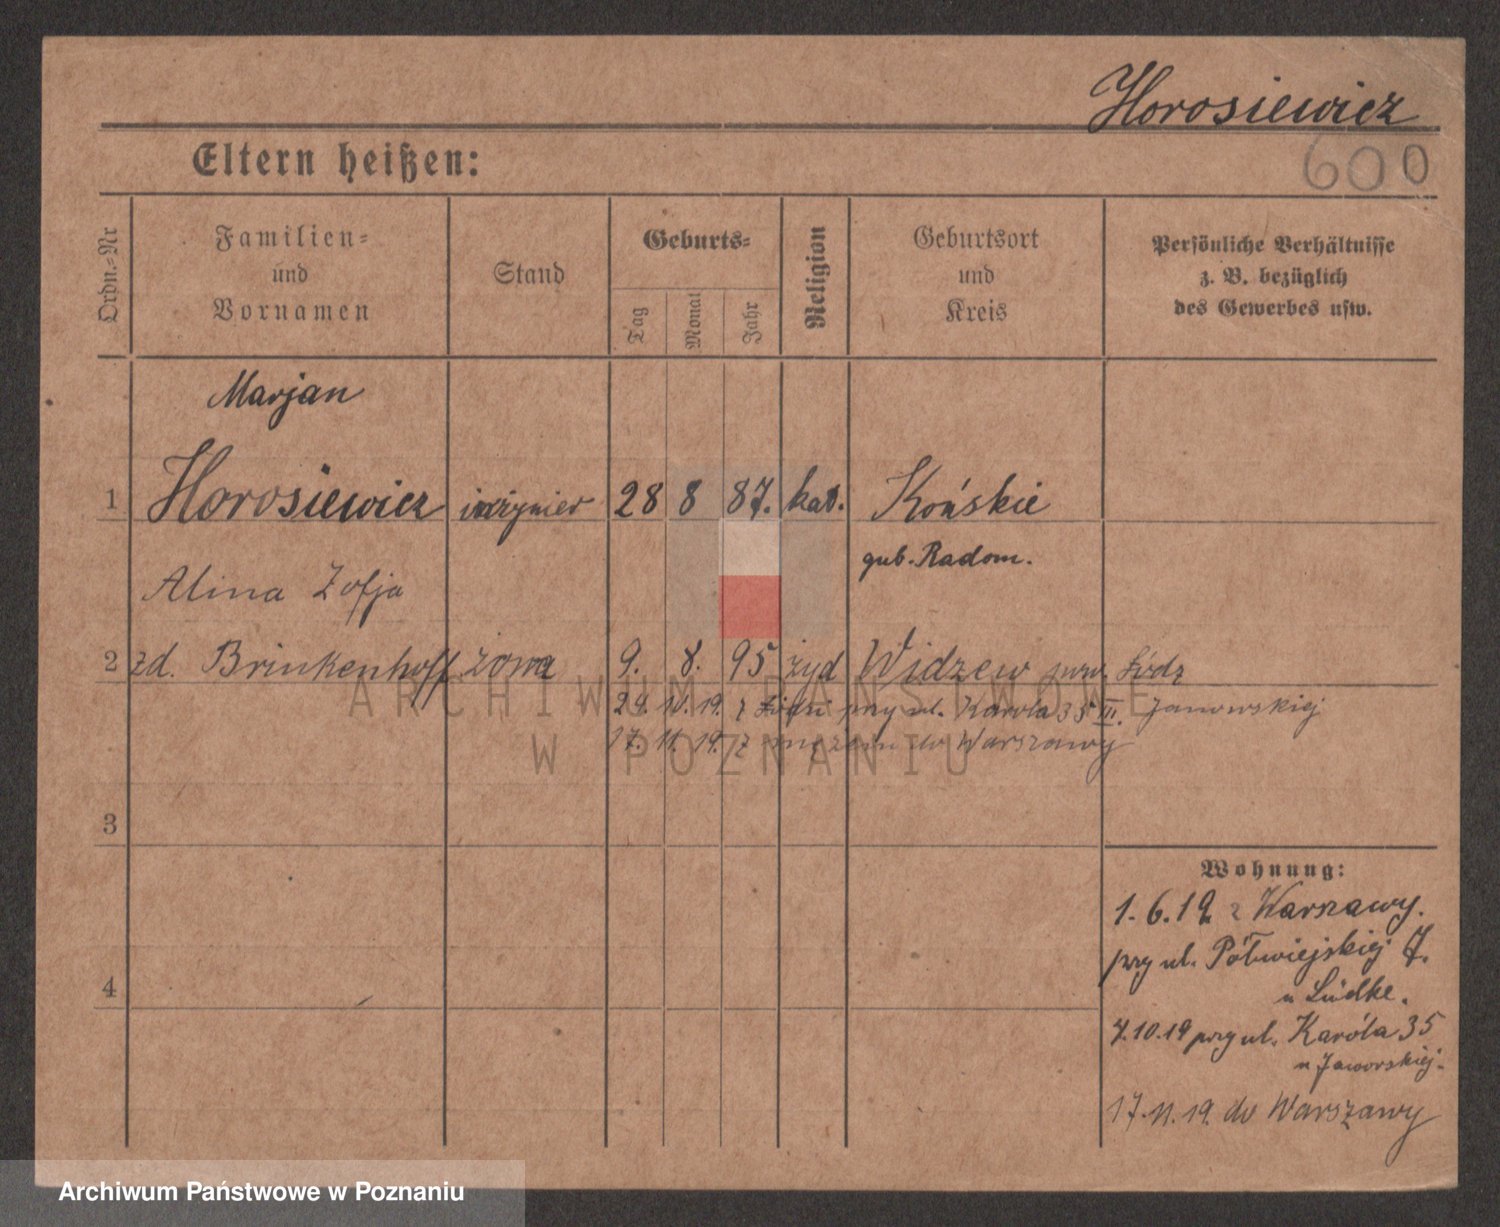 Horosiewicz
600
Eltern heißen:
Ordn.-Nr
Familien-
und
Vornamen
Stand
Geburts-
Tag
Monat
Jahr
Religion
Geburtsort
und
Kreis
Persönliche Verhältnisse
z. B. bezüglich
des Gewerbes usw.
Marjan
1 Horosiewicz inżynier 28 8 87. kat. Końskie
gub. Radom.
Alina Zofja
2 zd. Brinkenhoff żona 9. 8. 95 żyd Widzew pow. Łódz
10. 19. z Łodzi przy ul. Karola 35 III. Janowskiej
17. 11. 19. z mężem do Warszawy
3
4
Wohnung:
1.6.19 z Warszawy.
przy ul. Półwiejskiej 7.
u Lüdke.
7.10.19 przy ul. Karola 35
u Jaworskiej.
17.11.19. do Warszawy
ARCHIWUM PAŃSTWOWE
W POZNANIU
Archiwum Państwowe w Poznaniu